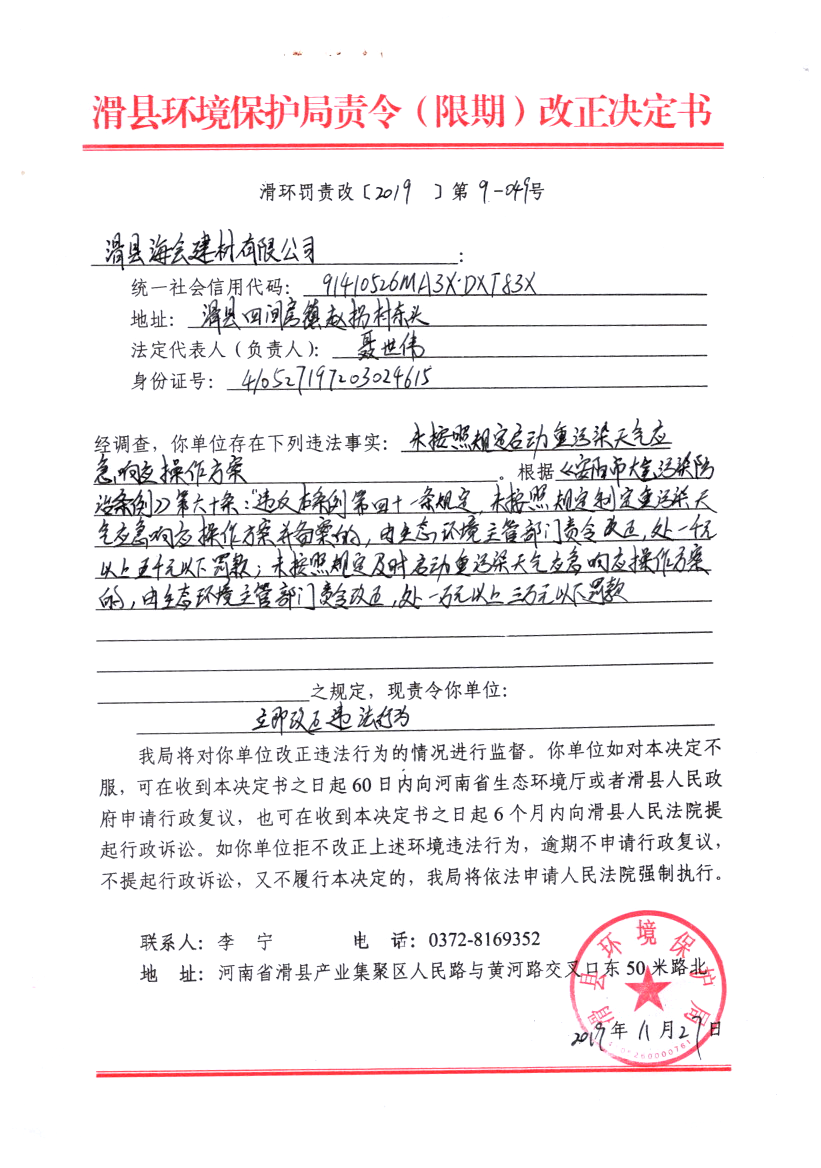 滑县环境保护局责令（限期）改正决定书
滑环罚责改〔2019 〕第 9-049号
滑县海会建材有限公司：
统一社会信用代码：91410526MA3X·DXT83X
地址：滑县四间房镇赵拐村东头
法定代表人（负责人）：聂世伟
身份证号：410527197203024615
经调查，你单位存在下列违法事实：未按照规定启动重污染天气应
急响应操作方案。根据《安阳市大气污染防
治条例》第六十条："违反本条例第四十一条规定，未按照规定制定重污染天
气应急响应操作方案并备案的，由生态环境主管部门责令改正，处一千元
以上五千元以下罚款；未按照规定及时启动重污染天气应急响应操作方案
的，由生态环境主管部门责令改正，处一万元以上三万元以下罚款
之规定，现责令你单位：
立即改正违法行为
我局将对你单位改正违法行为的情况进行监督。你单位如对本决定不
服，可在收到本决定书之日起 60 日内向河南省生态环境厅或者滑县人民政
府申请行政复议，也可在收到本决定书之日起 6 个月内向滑县人民法院提
起行政诉讼。如你单位拒不改正上述环境违法行为，逾期不申请行政复议，
不提起行政诉讼，又不履行本决定的，我局将依法申请人民法院强制执行。
联系人：李 宁 电 话：0372-8169352
地 址：河南省滑县产业集聚区人民路与黄河路交叉口东 50 米路北
滑县环境保护局
2019年 11 月 27 日